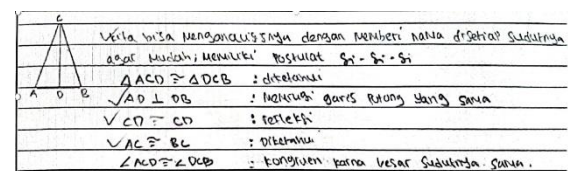 C
A D B
Kita bisa menganalisisnya dengan memberi nama disetiap sudutnya
agar mudah, memiliki postulat Si - Si - Si
△ACD ≅ △DCB : diketahui
✓AD ⊥ DB : garis potong yang sama
✓ CD ≅ CD : refleksi
✓AC ≅ BC : Diketahui
∠ACD ≅ ∠DCB : kongruen karna besar sudutnya sama.